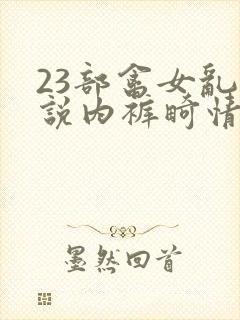 23部畜女乱
説内裤畸情
墨然回首